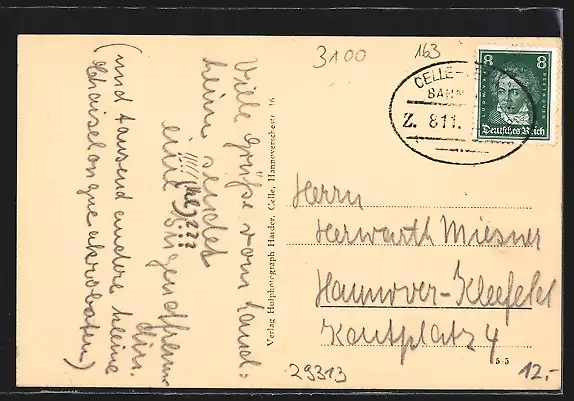 3100
163
CELLE-
BAHN
Z. 811.
8 8
Deutsches Reich
Viele Grüße vom Land-
heim sendet
eine Jugendfreun-
din.
(und tausend andere kleine
Chaiselongueakrobaten)
Verlag Hofphotograph Harder, Celle, Hannoverschestr 16
Herrn
Herwarth Miesner
Hannover-Kleefeld
Kantplatz 4
29313
12.-